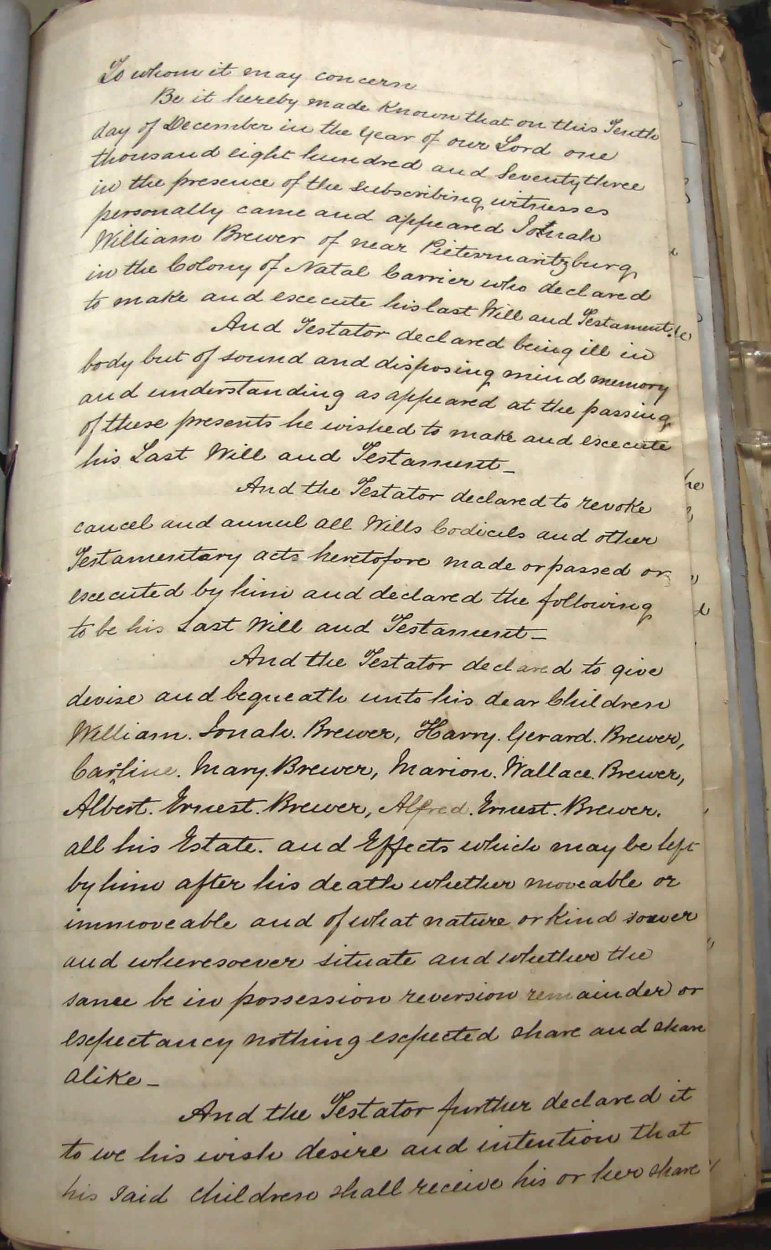 To whom it may concern
Be it hereby made Known that on this Tenth
day of December in the year of our Lord one
thousand eight hundred and Seventythree
in the presence of the subscribing witnesses
personally came and appeared Jonah
William Brewer of near Pietermaritzburg
in the Colony of Natal Carrier who declared
to make and execute his last Will and Testament.
And Testator declared being ill in
body but of sound and disposing mind memory
and understanding as appeared at the passing
of these presents he wished to make and execute
his Last Will and Testament_
And the Testator declared to revoke
cancel and annul all Wills Codicils and other
Testamentary acts heretofore made or passed or
executed by him and declared the following
to be his Last Will and Testament_
And the Testator declared to give
devise and bequeath unto his dear Children
William. Jonah. Brewer, Harry. Gerard. Brewer,
Carline. Mary. Brewer, Marion. Wallace. Brewer,
Albert. Ernest. Brewer, Alfred. Ernest. Brewer.
all his Estate. and Effects which may be left
by him after his death whether moveable or
immoveable and of what nature or Kind soever
and wheresoever situate and whether the
same be in possession reversion remainder or
expectancy nothing expected share and share
alike_
And the Testator further declared it
to be his wish desire and intention that
his said children shall receive his or her share